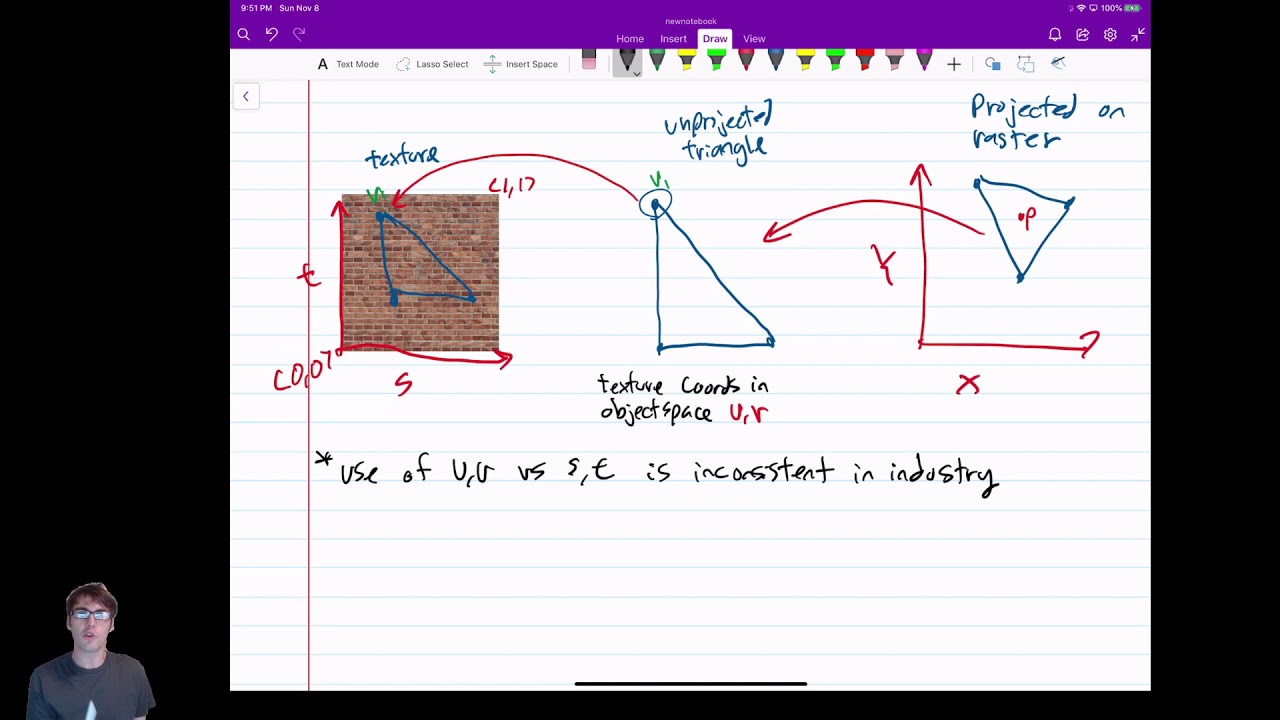 9:51 PM Sun Nov 8
100%
newnotebook
Home Insert Draw View
A Text Mode Lasso Select Insert Space
texture
unprojected
triangle
Projected on
raster
V1
(1,1)
V1
P
t
Y
(0,0)
S
X
texture coords in
objectspace U,V
*use of U,V vs S,t is inconsistent in industry